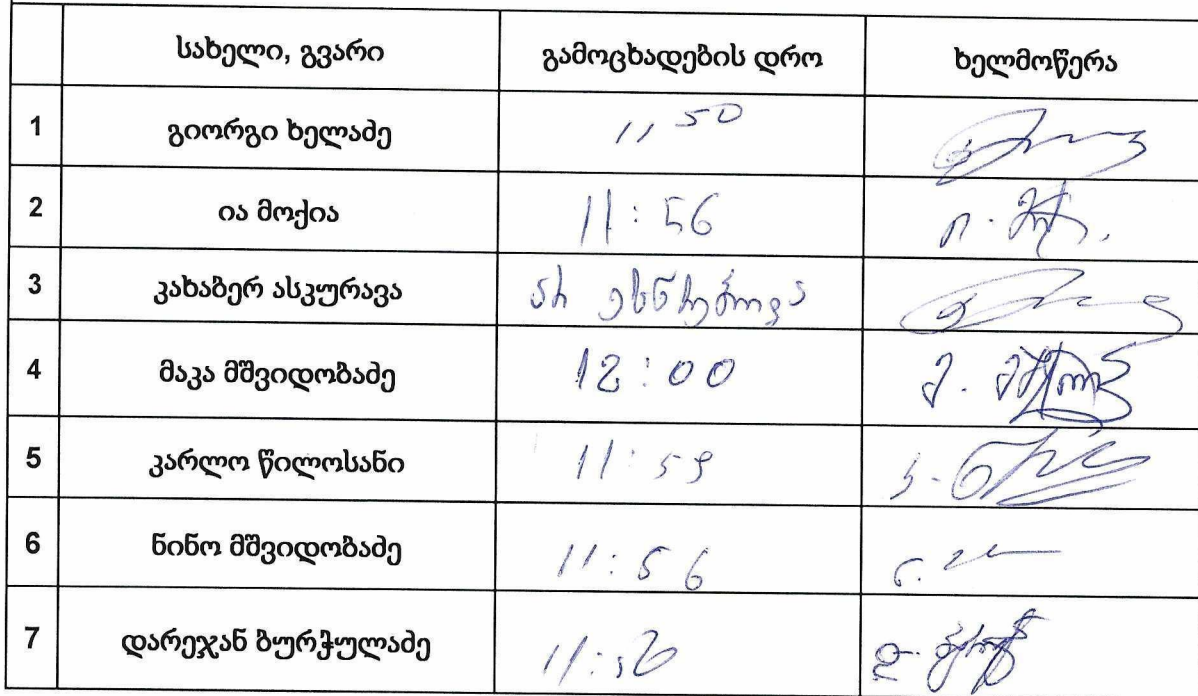 სახელი, გვარი გამოცხადების დრო ხელმოწერა
1 გიორგი ხელაძე 11 50
2 ია მოქია 11:56
3 კახაბერ ასკურავა არ ესწრებოდა
4 მაკა მშვიდობაძე 12:00
5 კარლო წილოსანი 11:59
6 ნინო მშვიდობაძე 11:56
7 დარეჯან ბურჭულაძე